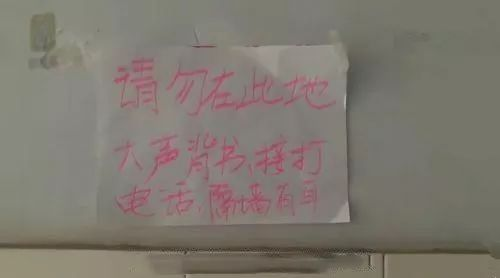 请勿在此地
大声背书、接打
电话、隔墙有耳